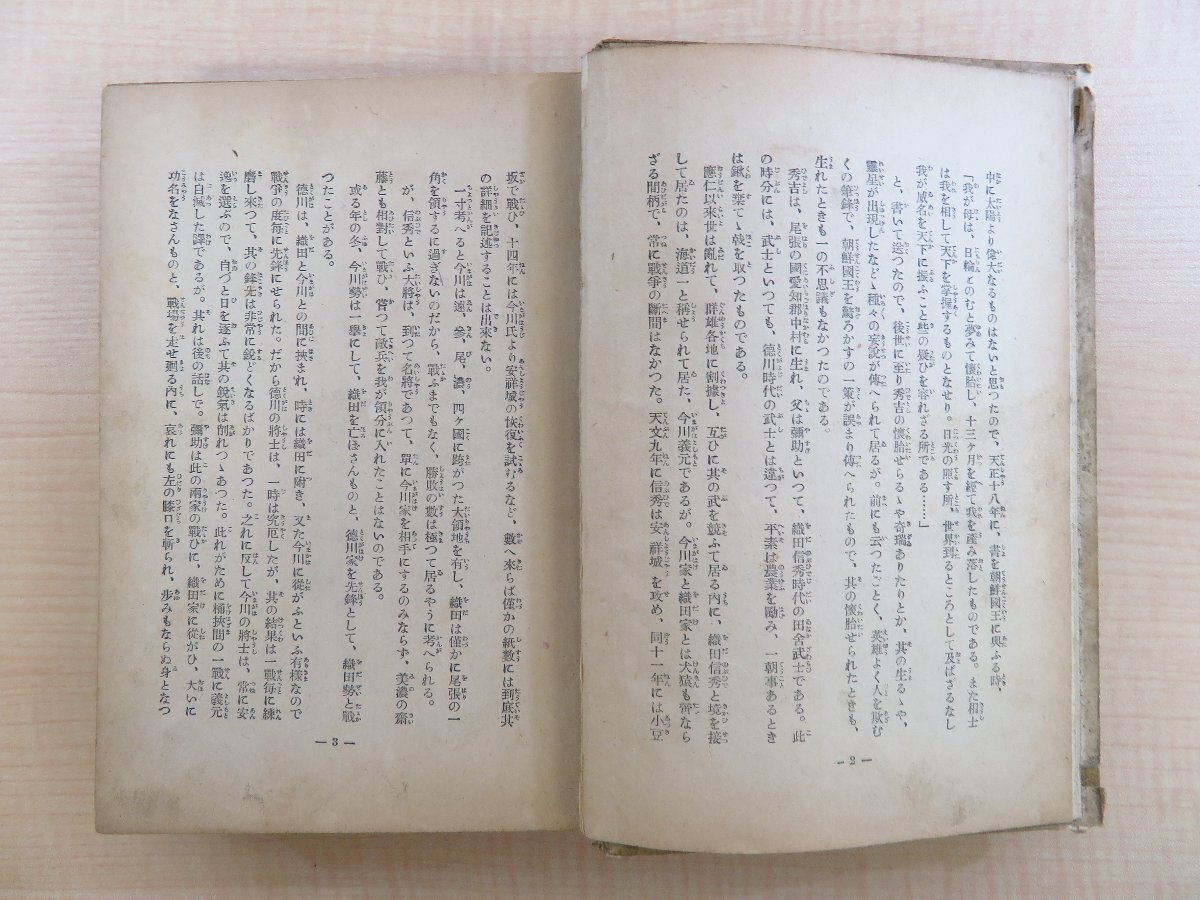 中に太陽より偉大なるものはないと思つたので、天正十八年に、書を朝鮮國王に與ふる時、
「我が母は、日輪とのむと夢みて懷胎し、十三ケ月を經て我を產み落したものである。また相士
は我を相して天下を掌握するものとなせり。日光の照す所、世界到るところとして及ばざるなし
我が威名を天下に振ふこと些の疑ひを容れざる所である……」
と、書いて送つたので、後世に至り秀吉の懷胎せらるゝや奇瑞ありたりとか、其の生るゝや、
靈星が出現したなどゝ種々の妄說が傳へられて居るが。前にも云つたごとく、英雄よく人を欺む
くの筆鋒で、朝鮮國王を驚ろかすの一策が誤まり傳へられたもので、其の懷胎せられたときも、
生れたときも一の不思議もなかつたのである。
秀吉は、尾張の國愛知郡中村に生れ、父は彌助といつて、織田信秀時代の田舍武士である。此
の時分には、武士といつても、德川時代の武士とは違つて、平素は農業を勵み、一朝事あるとき
は鍬を棄てゝ戟を取つたものである。
應仁以來世は亂れて、群雄各地に割據し、互ひに其の武を競ふて居る內に、織田信秀と境を接
して居たのは、海道一と稱せられて居た、今川義元であるが。今川家と織田家とは犬猿も啻なら
ざる間柄で、常に戰爭の斷間はなかつた。天文九年に信秀は安祥城を攻め、同十一年には小豆
— 2 —
坂で戰ひ、十四年には今川氏より安祥城の恢復を試むるなど、數へ來らば僅かの紙數には到底其
の詳細を記述することは出來ない。
一寸考へると今川は遠、參、尾、濃、四ケ國に跨がつた大領地を有し、織田は僅かに尾張の一
角を領するに過ぎないのだから、戰ふまでもなく、勝敗の數は極つて居るやうに考へられる。
が、信秀といふ大將は、到つて名將であつて、單に今川家を相手にするのみならず、美濃の齋
藤とも相對して戰ひ、嘗つて敵兵を我が領分に入れたことはないのである。
或る年の冬、今川勢は一擧にして、織田を亡ぼさんものと、德川家を先鋒として、織田勢と戰
つたことがある。
德川は、織田と今川との間に挾まれ、時には織田に附き、又た今川に從がふといふ有樣なので
戰爭の度每に先鋒にせられた。だから德川の將士は、一時は究厄したが、其の結果は一戰每に練
磨し來つて、其の鋒先は非常に銳どくなるばかりであつた。之れに反して今川の將士は、常に安
逸を選ぶので、自づと日を逐ふて其の銳氣は削れつゝあつた。此れがために桶狹間の一戰に義元
は自滅した譯であるが。其れは後の話しで。彌助は此の兩家の戰ひに、織田家に從がひ、大いに
功名をなさんものと、戰場を走せ廻る內に、哀れにも左の膝口を斬られ、步みもならぬ身となつ
— 3 —